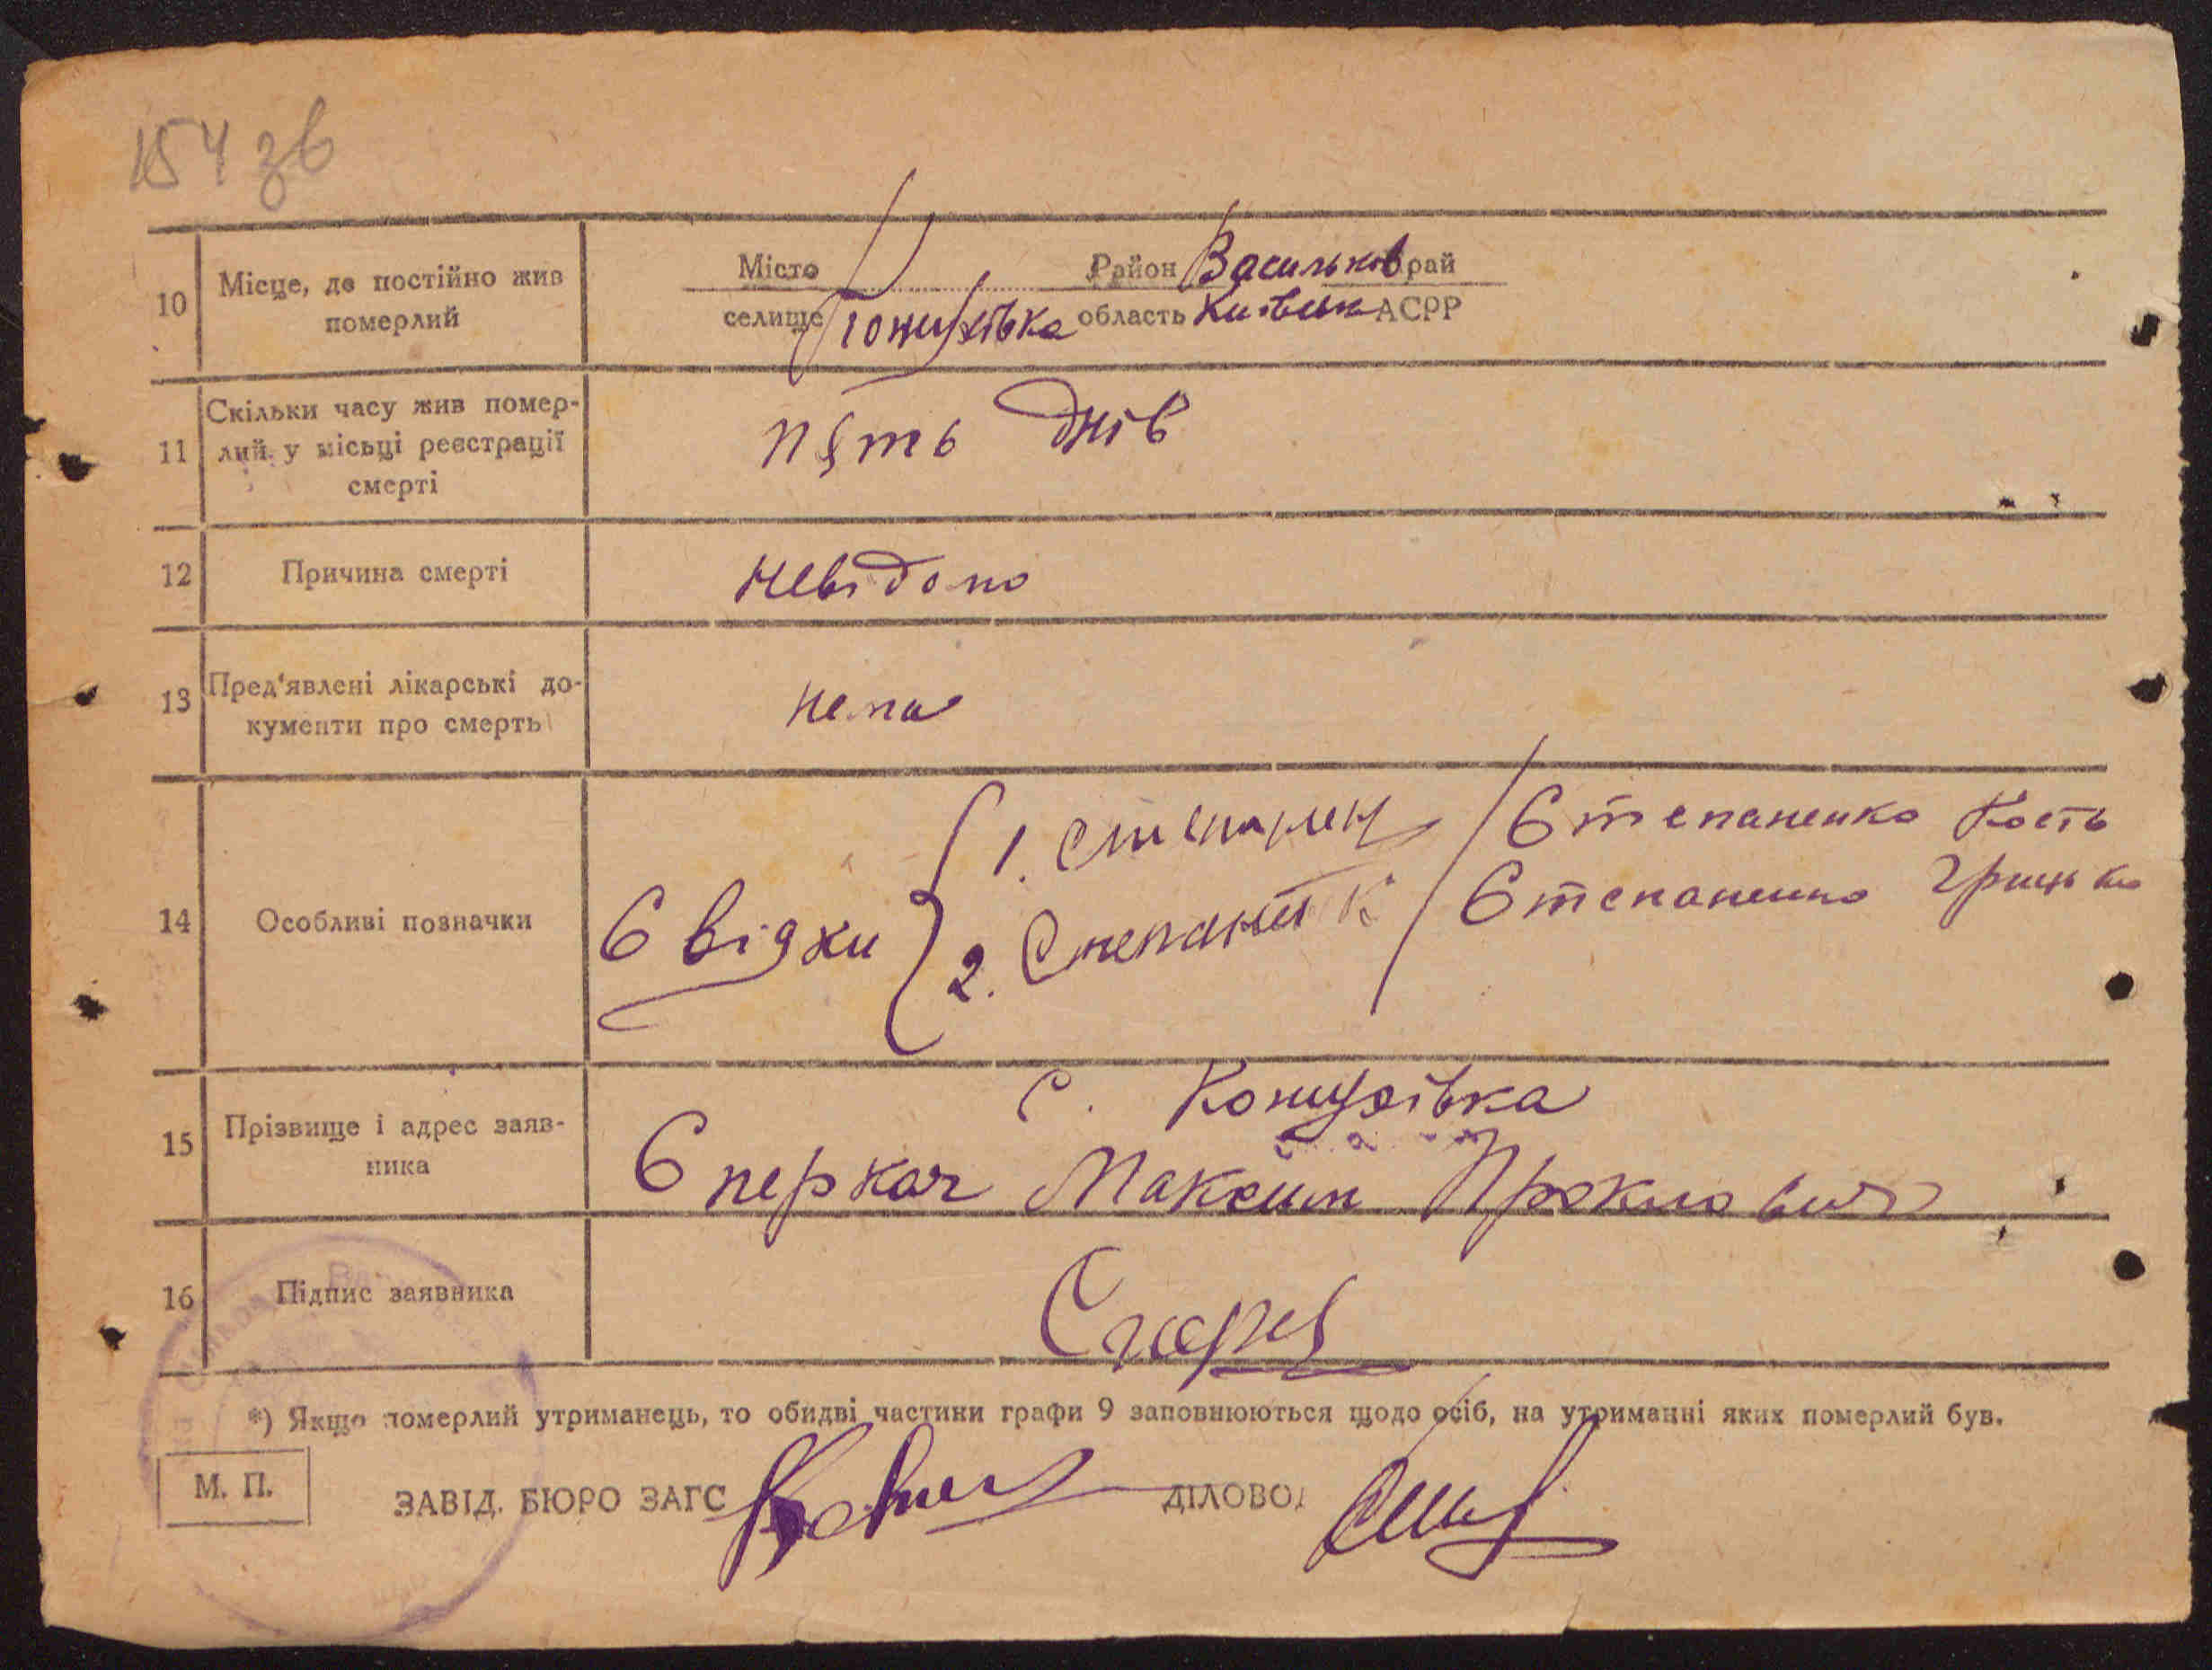 154 зв
10
Місце, де постійно жив
померлий
Місто Район Васильків край
селище Кожухівка область Київськ АСРР
11
Скільки часу жив помер-
лий у місьці реєстрації
смерті
пять днів
12
Причина смерті
невідомо
13
Пред'явлені лікарські до-
кументи про смерть
нема
14
Особливі позначки
Свідки
1. / Степаненко Кость
2. Степанен К / Степаненко Грицько
15
Прізвище і адрес заяв-
ника
с. Кожухівка
Сперкач Максим Проклович
16
Підпис заявника
*) Якщо померлий утриманець, то обидві частини графи 9 заповнюються щодо осіб, на утриманні яких померлий був.
М. П.
ЗАВІД. БЮРО ЗАГС ДІЛОВОД